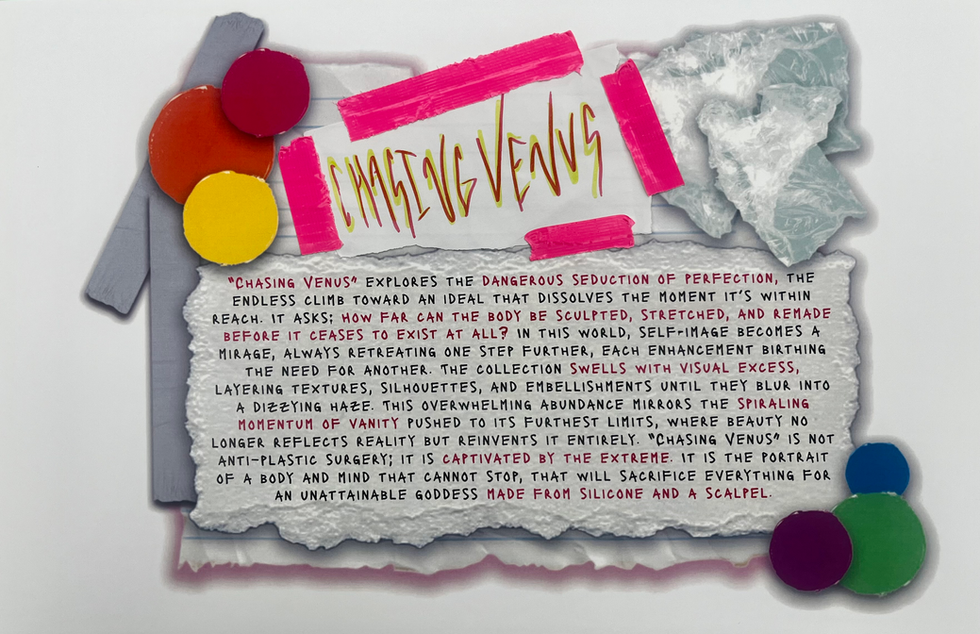 CHASING VENUS
"CHASING VENUS" EXPLORES THE DANGEROUS SEDUCTION OF PERFECTION, THE
ENDLESS CLIMB TOWARD AN IDEAL THAT DISSOLVES THE MOMENT IT'S WITHIN
REACH. IT ASKS; HOW FAR CAN THE BODY BE SCULPTED, STRETCHED, AND REMADE
BEFORE IT CEASES TO EXIST AT ALL? IN THIS WORLD, SELF-IMAGE BECOMES A
MIRAGE, ALWAYS RETREATING ONE STEP FURTHER, EACH ENHANCEMENT BIRTHING
THE NEED FOR ANOTHER. THE COLLECTION SWELLS WITH VISUAL EXCESS,
LAYERING TEXTURES, SILHOUETTES, AND EMBELLISHMENTS UNTIL THEY BLUR INTO
A DIZZYING HAZE. THIS OVERWHELMING ABUNDANCE MIRRORS THE SPIRALING
MOMENTUM OF VANITY PUSHED TO ITS FURTHEST LIMITS, WHERE BEAUTY NO
LONGER REFLECTS REALITY BUT REINVENTS IT ENTIRELY. "CHASING VENUS" IS NOT
ANTI-PLASTIC SURGERY; IT IS CAPTIVATED BY THE EXTREME. IT IS THE PORTRAIT
OF A BODY AND MIND THAT CANNOT STOP, THAT WILL SACRIFICE EVERYTHING FOR
AN UNATTAINABLE GODDESS MADE FROM SILICONE AND A SCALPEL.